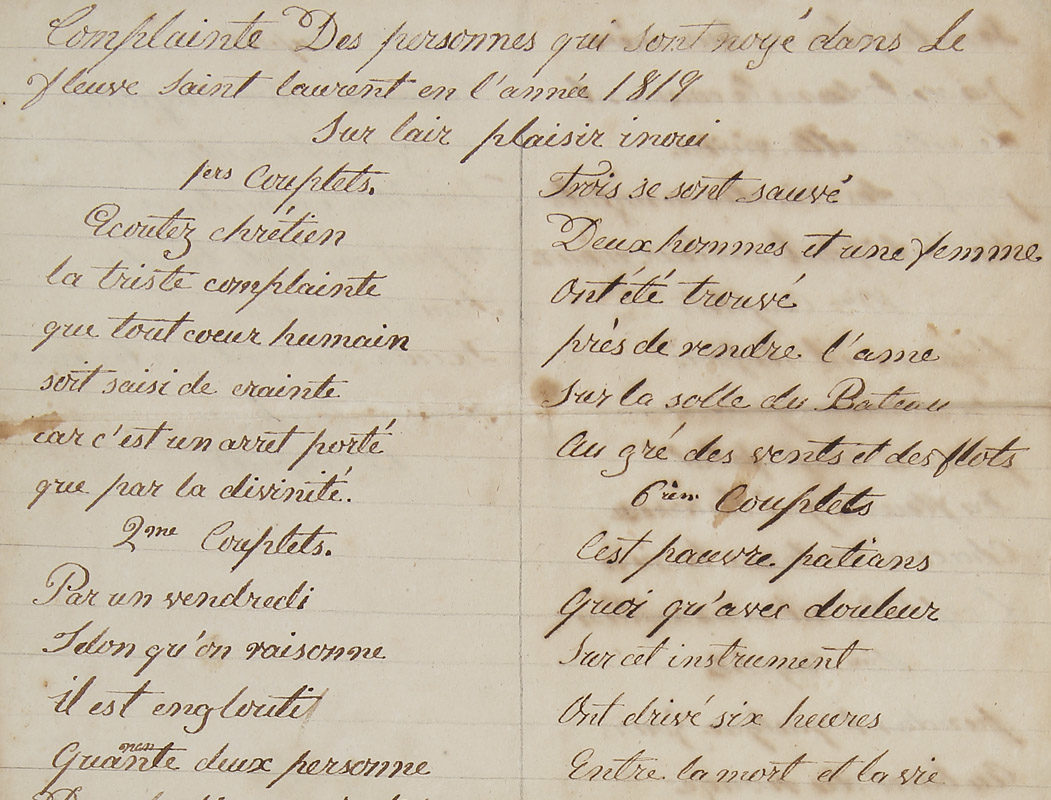 Complainte Des personnes qui sont noyé dans Le
fleuve saint laurent en l'année 1819
Sur lair plaisir inoui
1ers Couplets.
Ecoutez chrétien
la triste complainte
que tout coeur humain
soit saisi de crainte
car c'est un arret porté
que par la divinité.
2me Couplets.
Par un vendredi
Selon qu'on raisonne
il est englouti
Quarante deux personne
Trois se sont sauvé
Deux hommes et une femme
Ont été trouvé
près de rendre l'ame
Sur la solle du Bateau
Au gré des vents et des flots
6ièm Couplets
Cest pauvre patians
Quoi qu'avec douleur
Sur cet instrument
Ont drivé six heures
Entre la mort et la vie